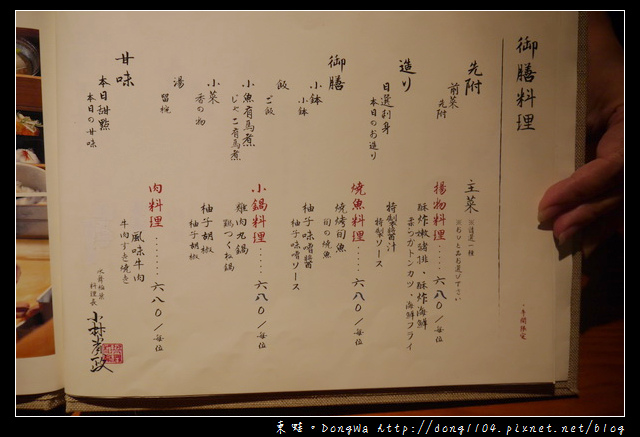 御膳料理
・午間限定
先附
前菜
先附
造り
日選刺身
本日のお造り
御膳
小鉢
小鉢
飯
ご飯
小魚有馬煮
じゃこ有馬煮
小菜
香の物
湯
留椀
甘味
本日甜點
本日の甘味
主菜
※請選一種
※もっと品お選び下さい
揚物料理‥‥六八〇/每位
酥炸嫩豬排、酥炸海鮮
柔らかトンカツ、海鮮フライ
特製醬汁
特製ソース
燒魚料理‥‥六八〇/每位
燒烤旬魚
旬の燒魚
柚子味噌醬
柚子味噌ソース
小鍋料理‥‥六八〇/每位
雞肉丸鍋
鶏つくね鍋
柚子胡椒
柚子胡椒
肉料理‥‥六八〇/每位
風味牛肉
牛肉すき燒き
料理長
東蛙。DongWa http://dong1104.pixnet.net/blog